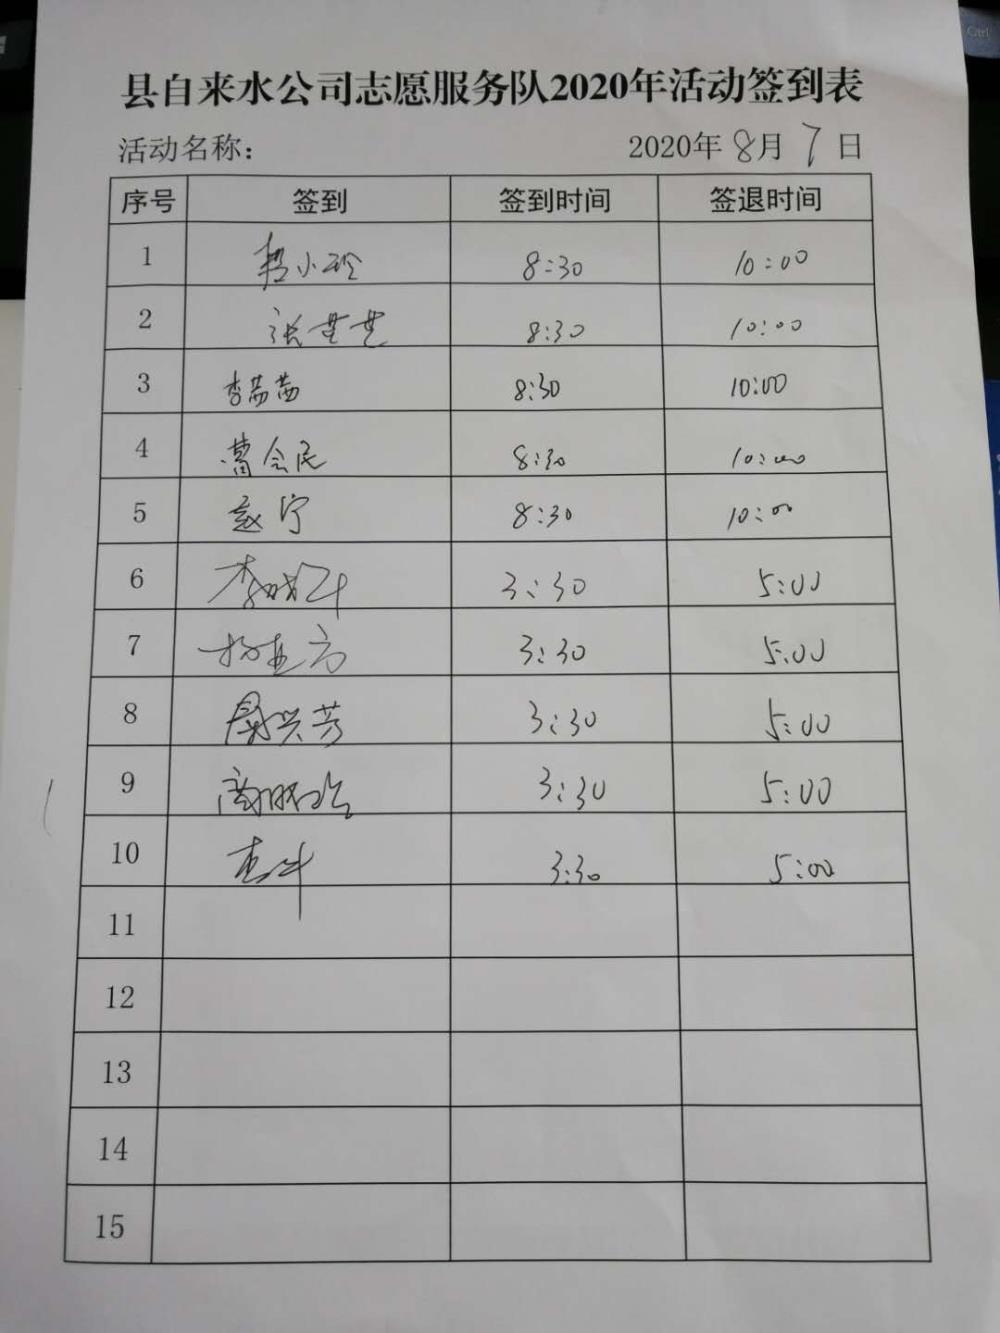 县自来水公司志愿服务队2020年活动签到表
活动名称: 2020年8月7日
序号 签到 签到时间 签退时间
1 小玲 8:30 10:00
2 张芸芸 8:30 10:00
3 李茜茜 8:30 10:00
4 葛会民 8:30 10:00
5 赵宁 8:30 10:00
6 李 3:30 5:00
7 杨亚方 3:30 5:00
8 兴芳 3:30 5:00
9 3:30 5:00
10 3:30 5:00
11
12
13
14
15
Ctrl